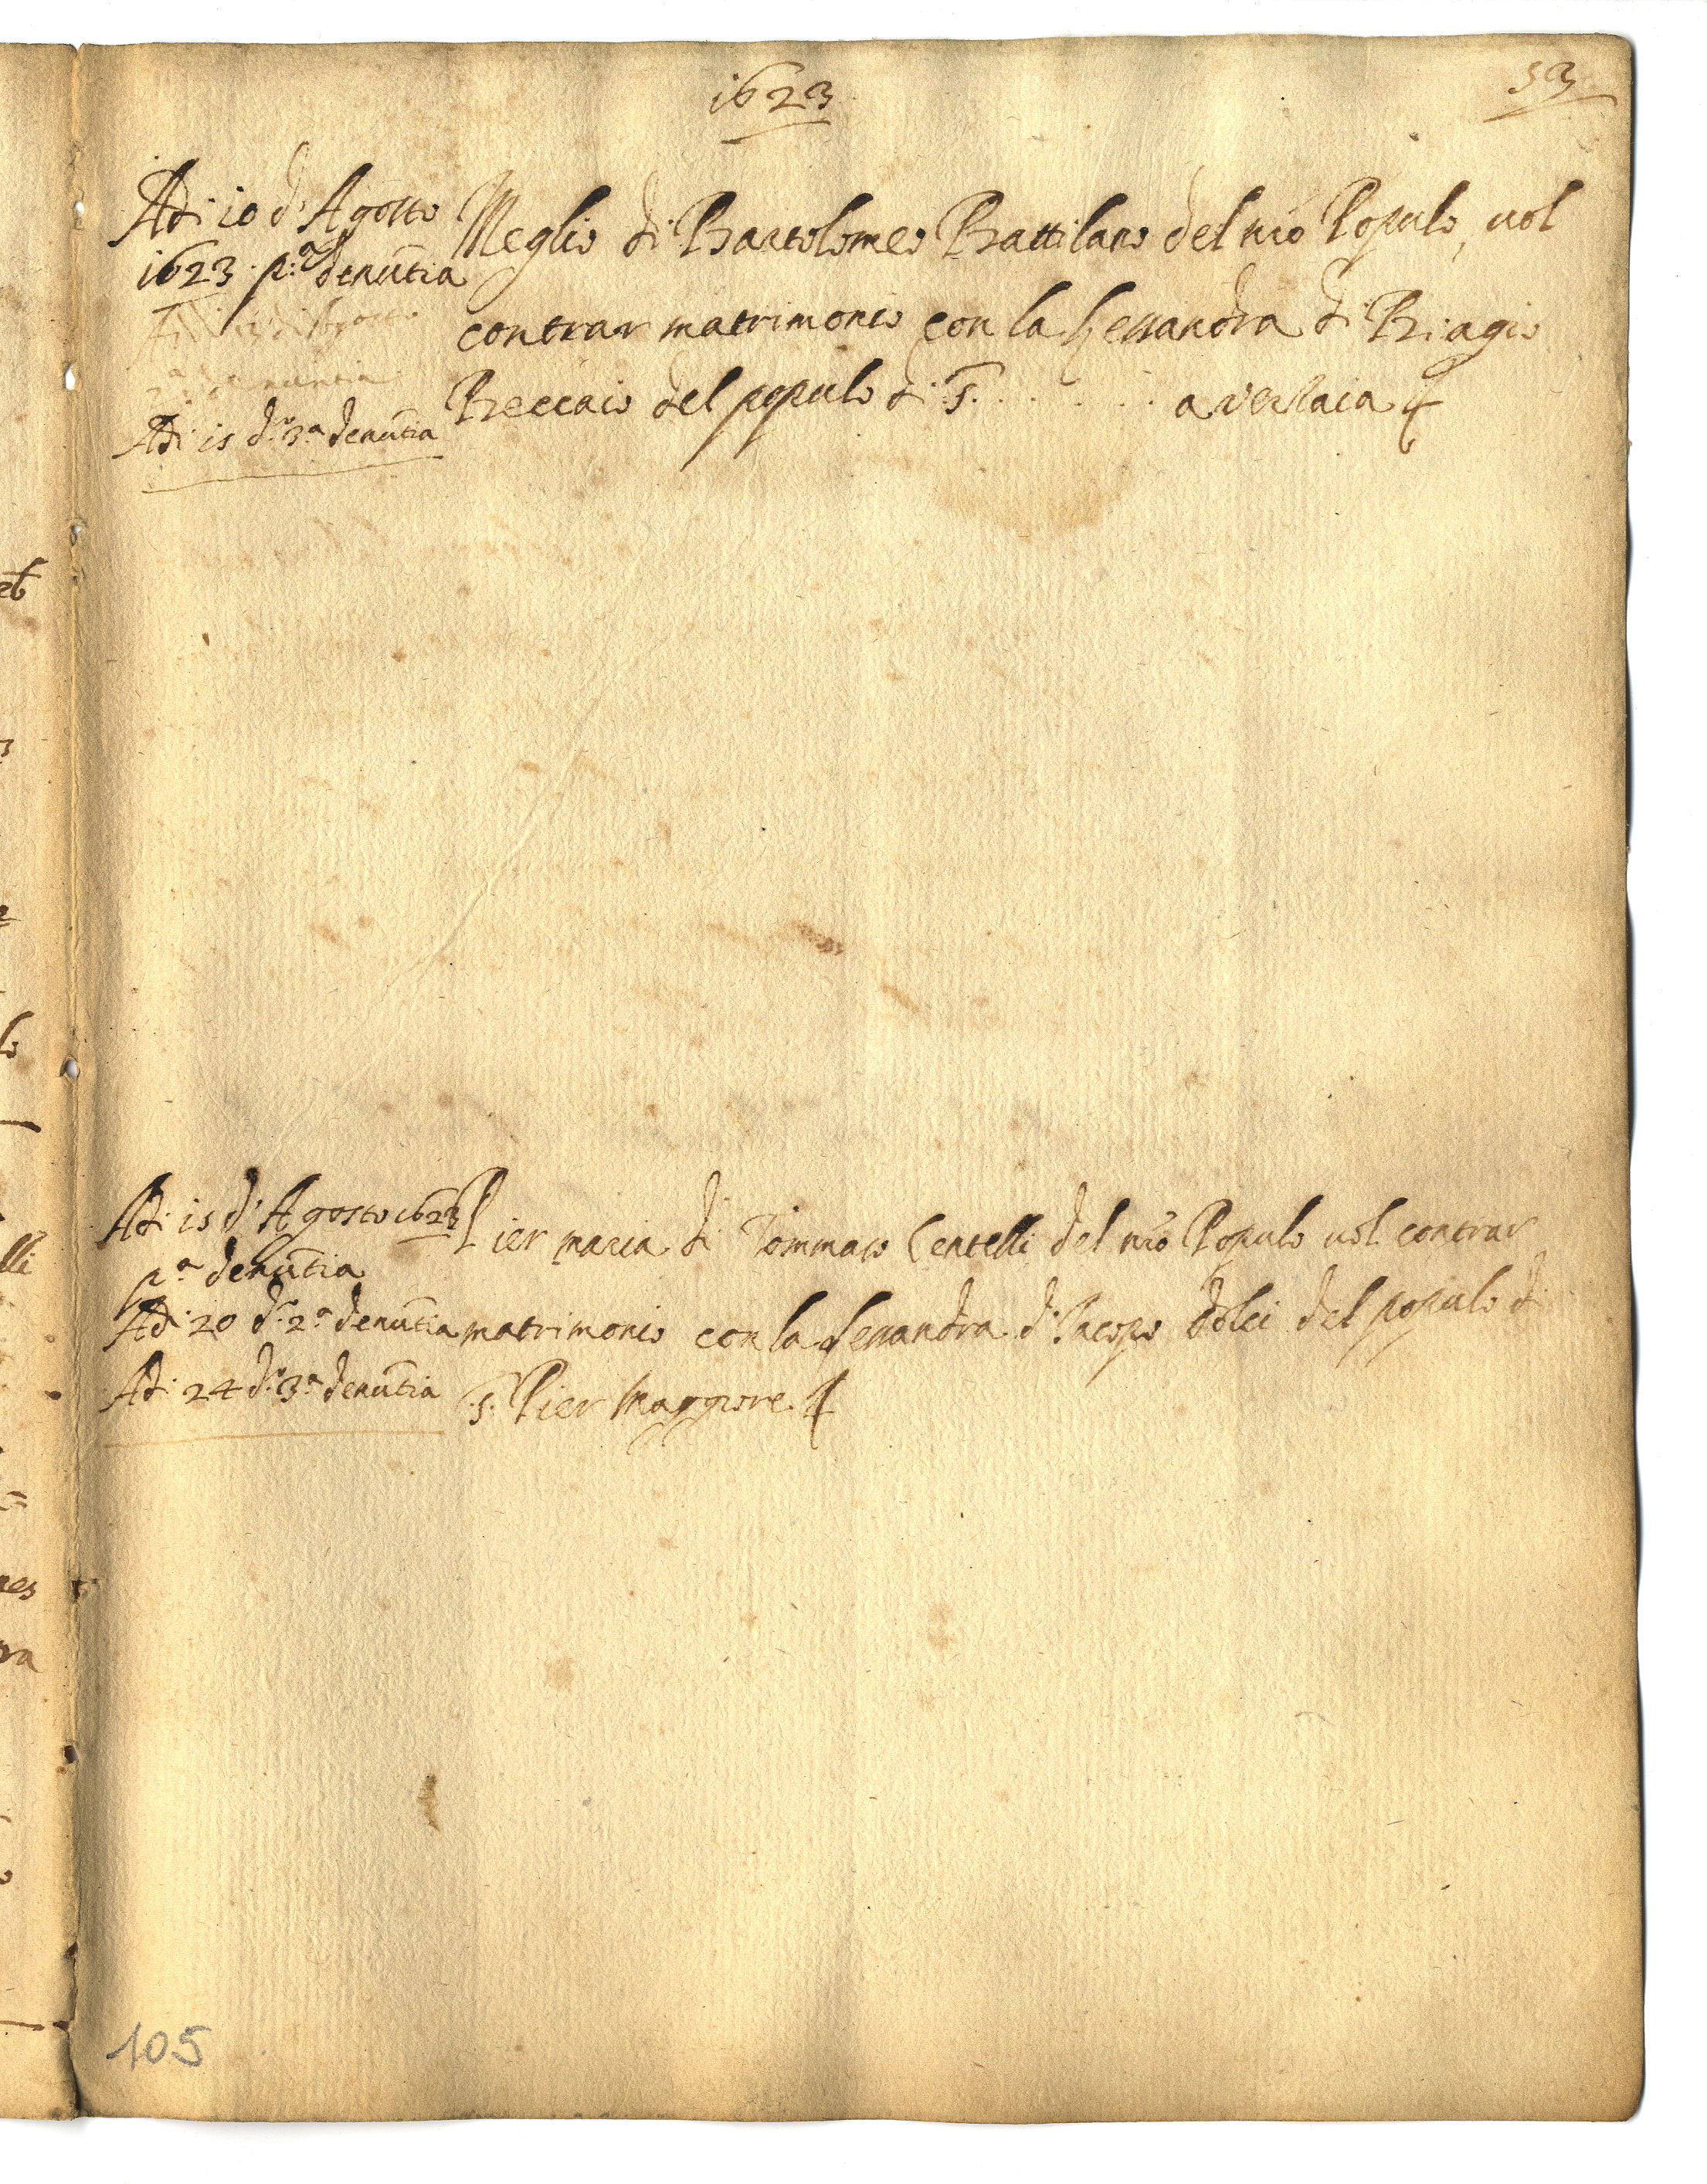 1623
53
Adi 10 d'Agosto
1623 p.a denũtia
2a denuntia
Adi 15 d.o 3.a denũtia
Meglio di Bartolomeo Battilano del nro Populo, vol
contrar matrimonio con la Lessandra di Biagio
Beccaio del populo di S. . . . . . . a
Adi 15 d'Agosto 1623
p.a denũtia
Adi 20 d.o 2.a denũtia
Adi 24 d.o 3.a denũtia
Pier maria di Tommaso Centelli del nro Populo vol contrar
matrimonio con la Lessandra di Iacopo dolci del populo di
S. Pier Maggiore
105